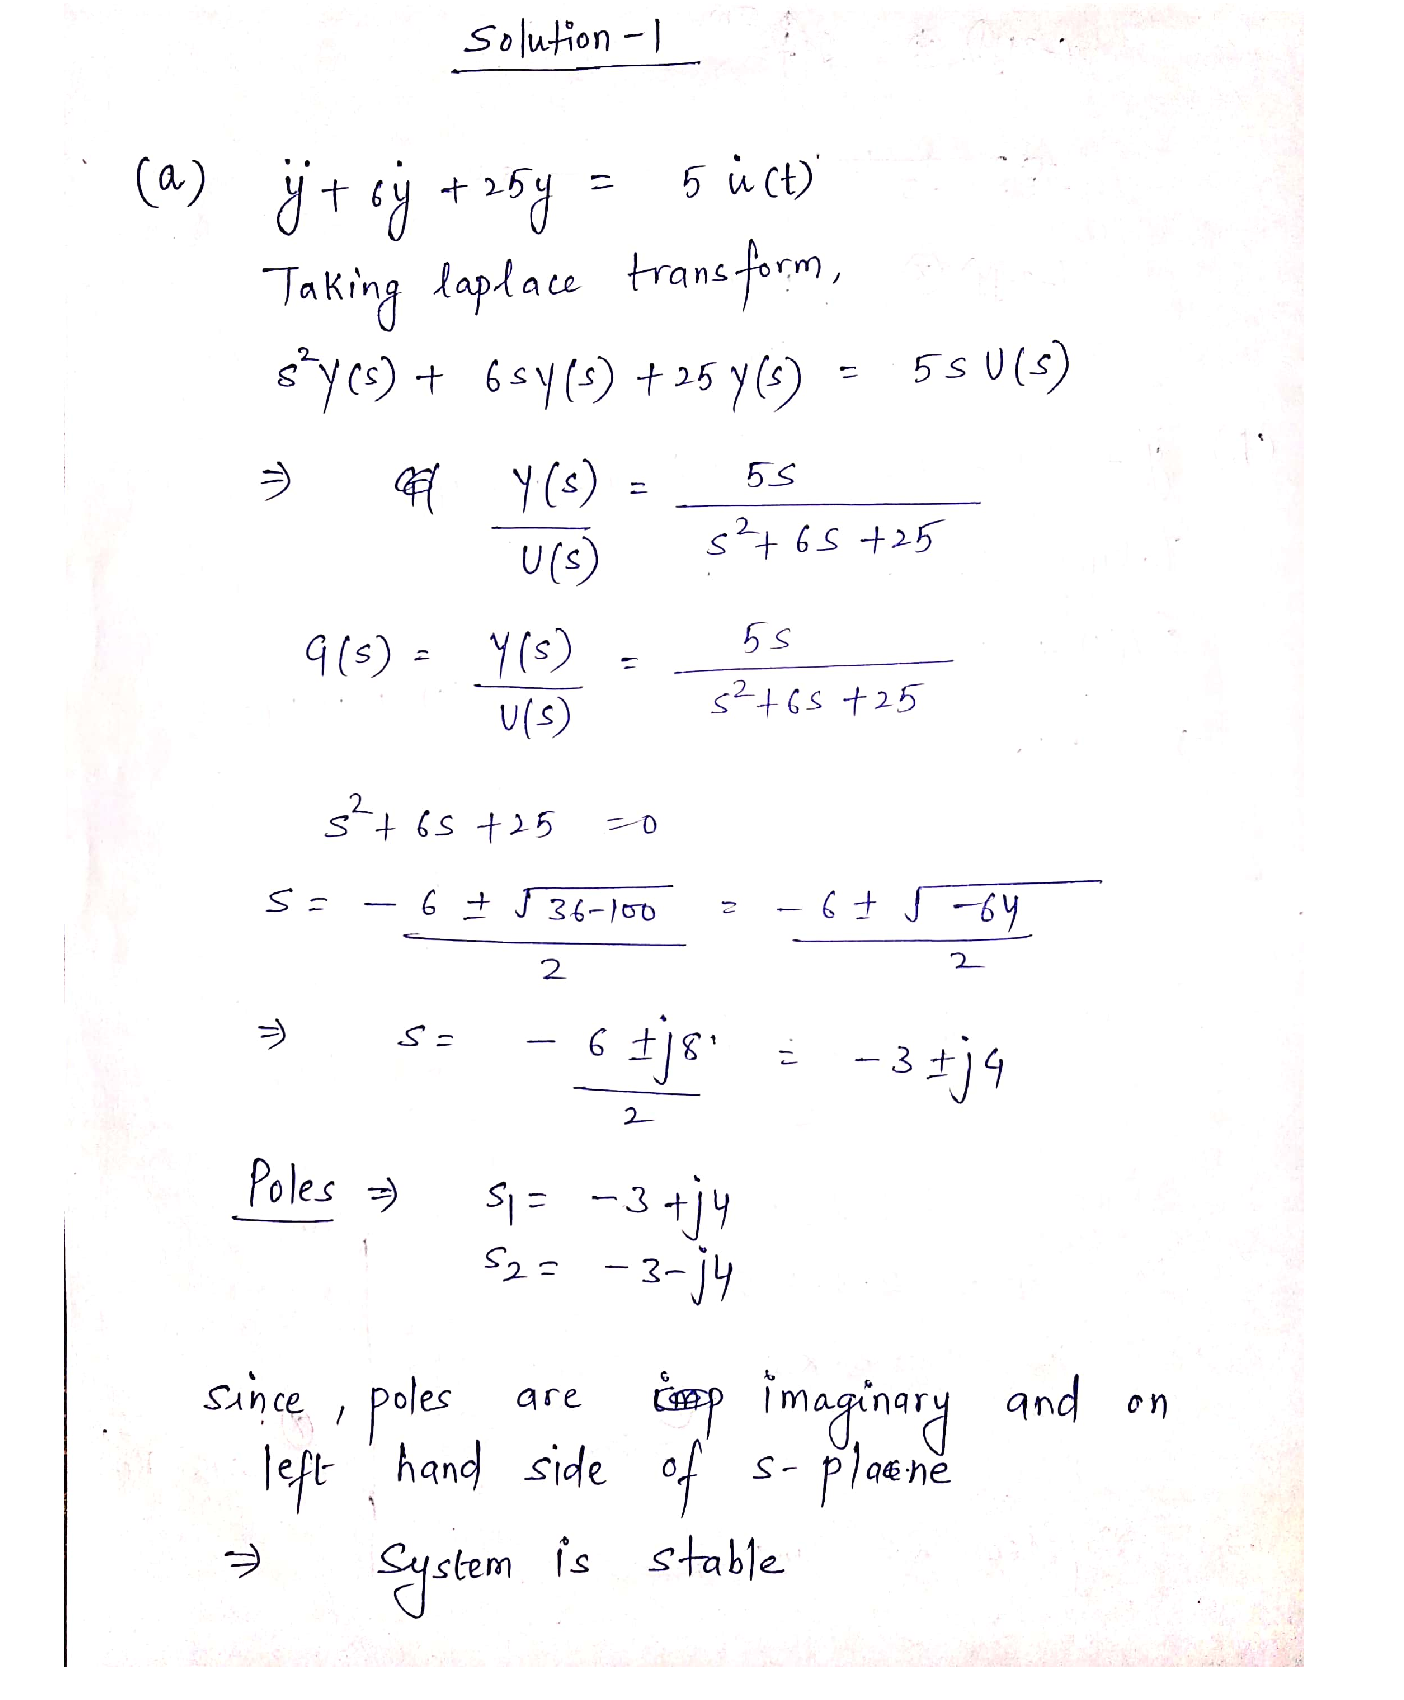 Solution-1
(a) ÿ + 6ẏ + 25y = 5 u̇(t)
Taking laplace transform,
s²Y(s) + 6sY(s) + 25Y(s) = 5sU(s)
⇒ Y(s)/U(s) = 5s/(s²+6s+25)
G(s) = Y(s)/U(s) = 5s/(s²+6s+25)
s²+6s+25 =0
s = (-6 ± √36-100)/2 = (-6 ± √-64)/2
⇒ s = (-6 ±j8)/2 = -3 ±j4
Poles ⇒ s1 = -3+j4
s2 = -3-j4
since, poles are imaginary and on
left hand side of s-plane
⇒ System is stable